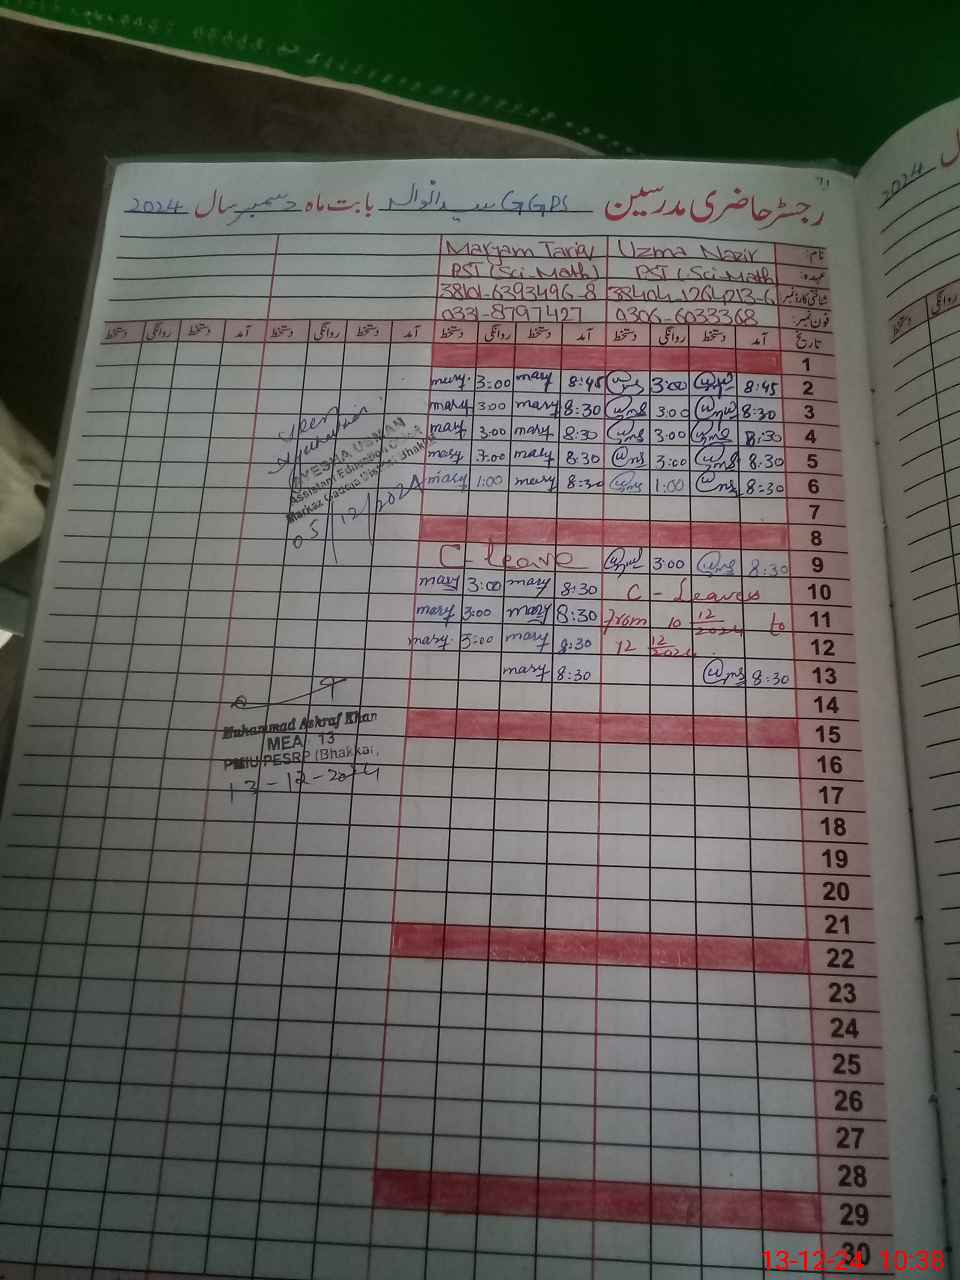 71
رجسٹر حاضری مدرسین GGPS سیدانوالہ بابت ماہ دسمبر سال 2024
نام: Uzma Nazir Maryam Tariq
عہدہ: PST (Sci-Math) PST (Sci-Math)
شناختی کارڈ نمبر 38404-1264213-6 38101-6393496-8
فون نمبر: 0306-6033368 0331-8797427
تاریخ آمد دستخط روانگی دستخط آمد دستخط روانگی دستخط آمد دستخط روانگی دستخط آمد دستخط روانگی دستخط
1
2 8:45 3:00 8:45 mary 3:00 mary
3 8:30 3:00 8:30 mary 3:00 mary
4 8:30 3:00 8:30 mary 3:00 mary
5 8:30 3:00 8:30 mary 3:00 mary
6 8:30 1:00 8:30 mary 1:00 mary
7
8
9 8:30 3:00 C-leave
10 C-Leaves 8:30 mary 3:00 mary
11 from 10 12/2024 to 8:30 mary 3:00 mary
12 12 12/2024 8:30 mary 3:00 mary
13 8:30 8:30 mary
14
15
16
17
18
19
20
21
22
23
24
25
26
27
28
29
30
Seen
AYESHA USMAN
Assistant Education Officer
Markaz District Bhakkar
05/12/2024
Muhammad Ashraf Khan
MEA 13
PMIU PESRP (Bhakkar)
13-12-2024
2024
روانگی
دستخط
13-12-24 10:38